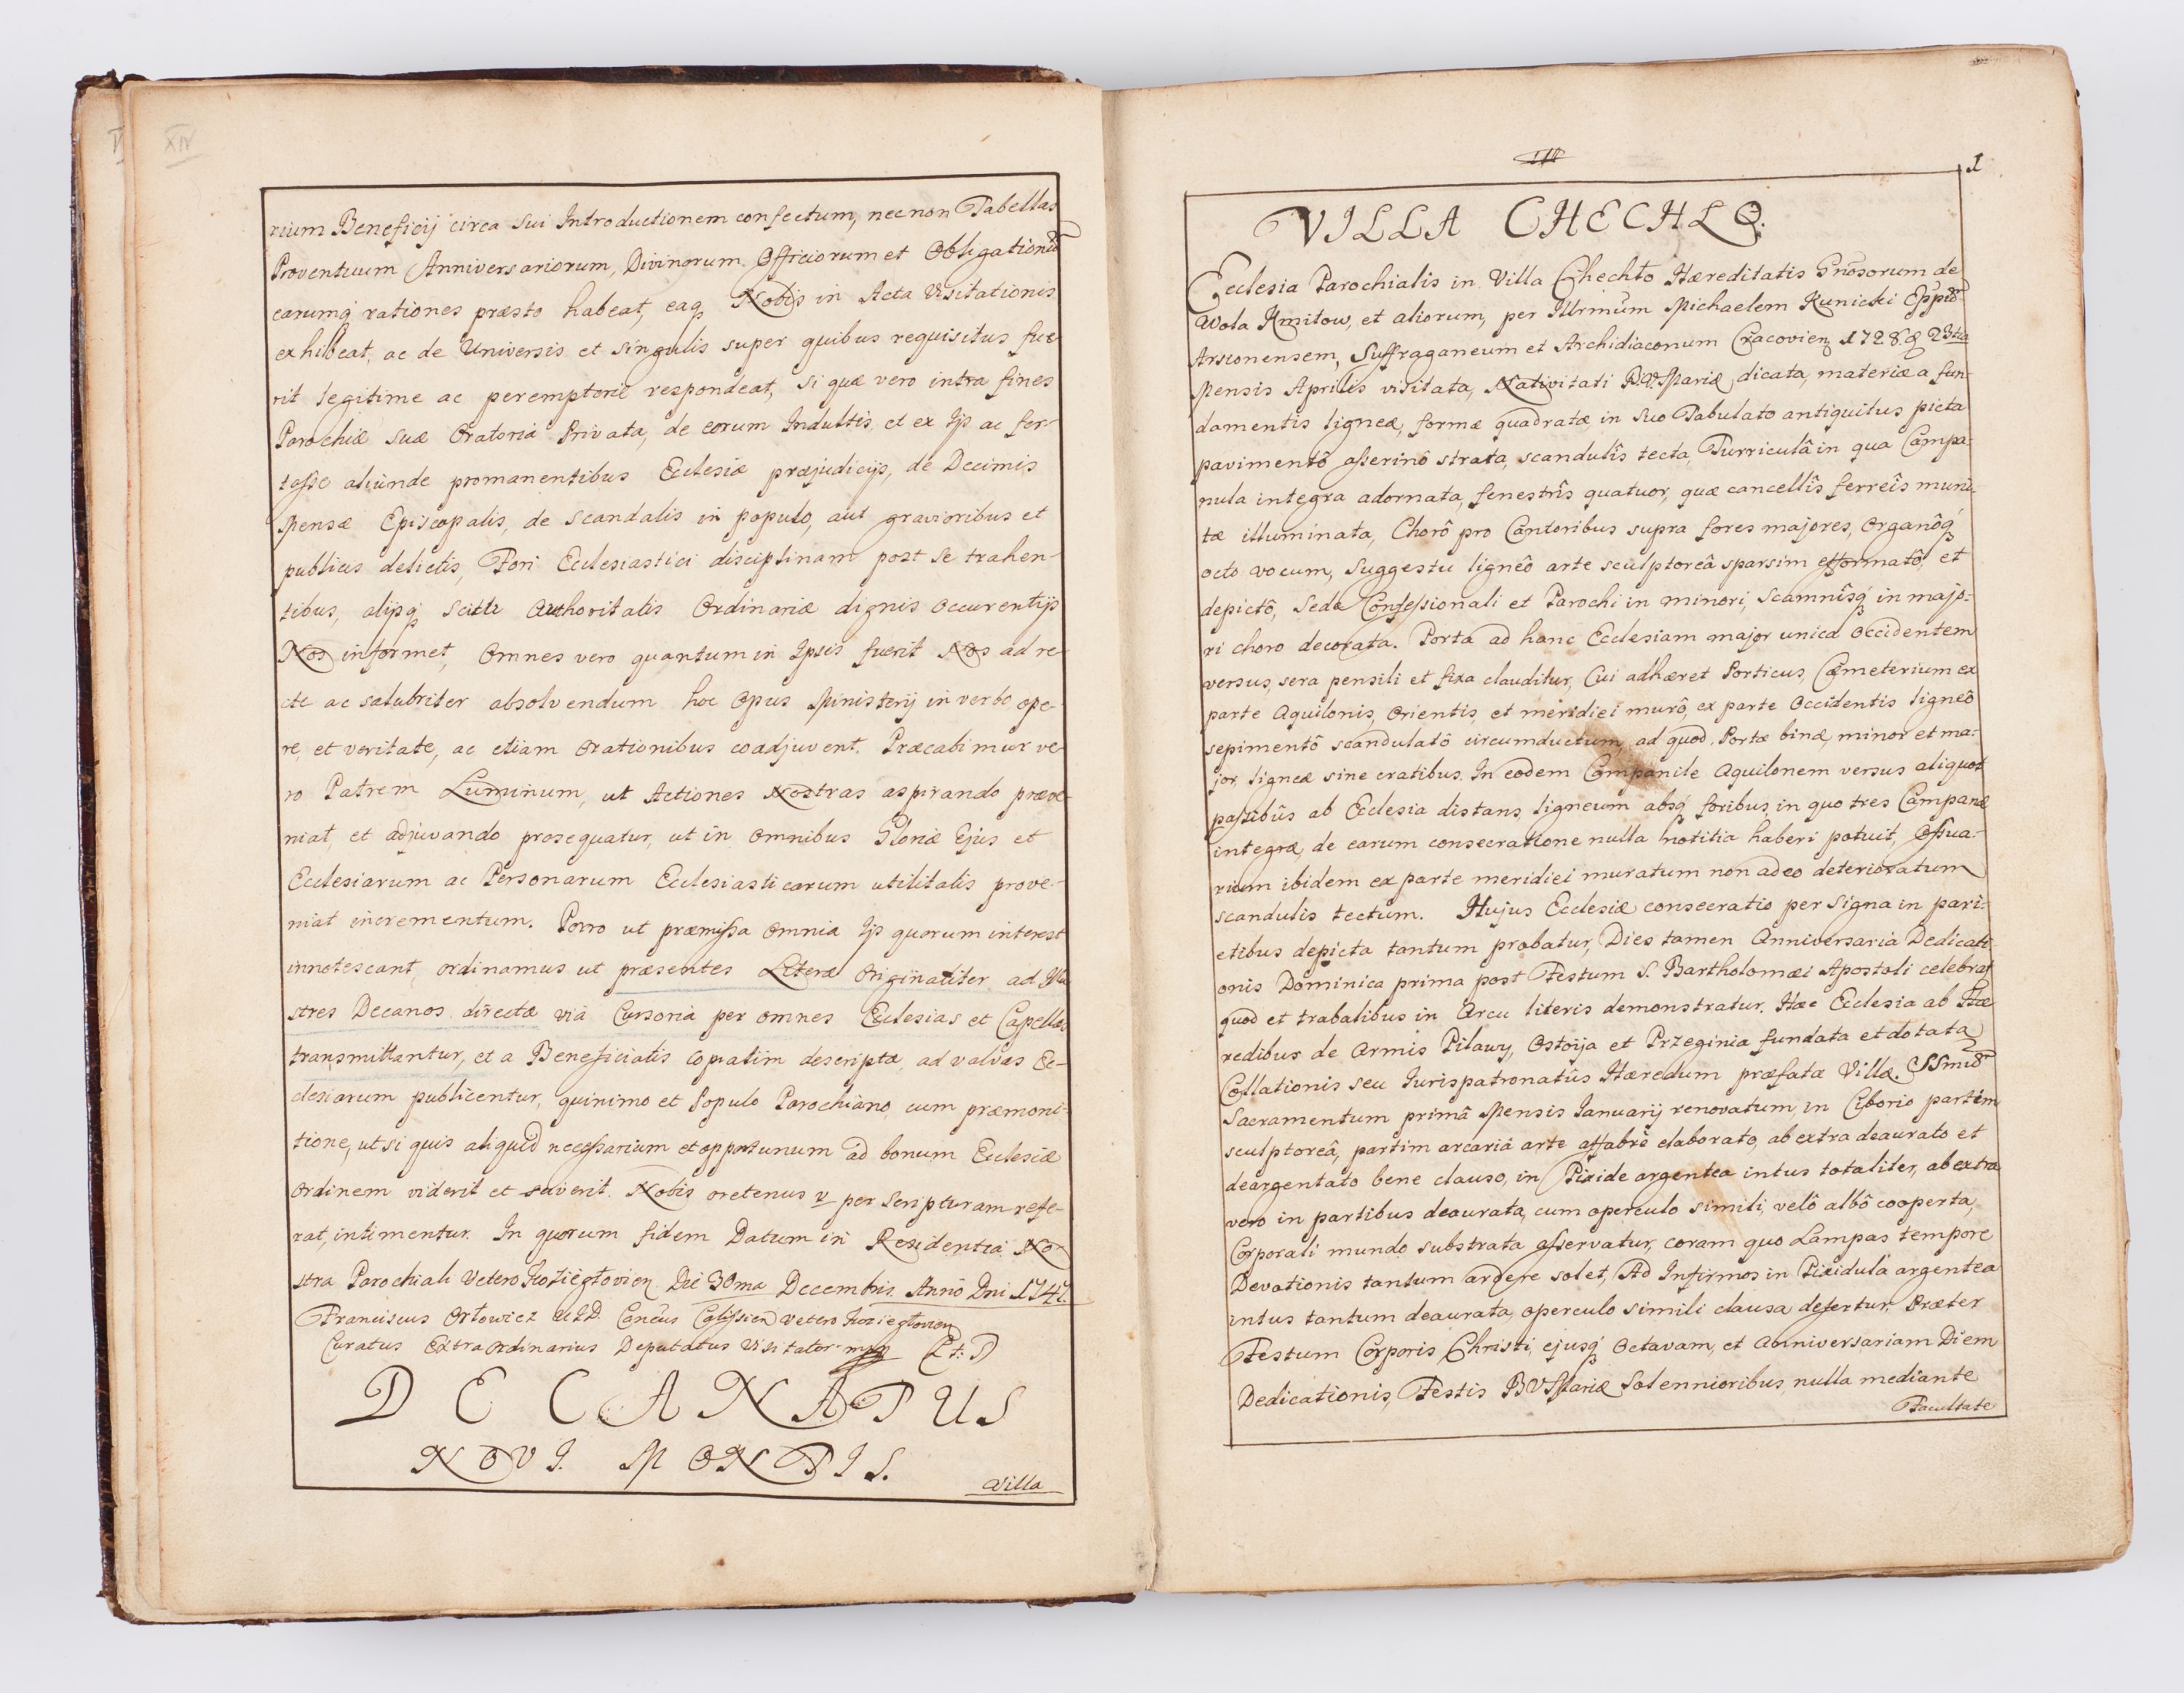 XIV
rium Beneficij circa sui Introductionem confectum, necnon Tabellas
Proventuum Anniversariorum, Divinorum Officiorum et Obligationũ
earumq́ rationes præsto habeat, eaq́ Nobis in Acta Visitationis
exhibeat, ac de Universis et singulis super quibus requisitus fue-
rit legitime ac peremptorie respondeat, si quæ vero intra fines
Parochiæ suæ Oratoria Privata, de eorum Indultis, et ex Ijs ac for-
tasse aliunde promanentibus Ecclesiæ præjudicijs, de Decimis
Mensæ Episcopalis, de scandalis in populo, aut gravioribus et
publicis delictis, Fori Ecclesiastici disciplinam post se trahen-
tibus, alijsq́ scitu Authoritatis Ordinariæ dignis occurentijs
Nos informet, Omnes vero quantum in Ipsis fuerit Nos ad re-
cte ac salubriter absolvendum hoc Opus Ministerij in verbo, ope-
re, et veritate, ac etiam Orationibus coadjuvent. Præcabimur ve-
ro Patrem Luminum, ut Actiones Nostras aspirando præve-
niat, et adjuvando prosequatur, ut in omnibus Gloriæ Ejus et
Ecclesiarum ac Personarum Ecclesiasticarum utilitatis prove-
niat incrementum. Porro ut præmissa omnia Ijs quorum interest
innotescant, ordinamus ut præsentes Literæ Originaliter ad Illu
stres Decanos directæ via Cursoria per omnes Ecclesias et Capellas
transmittantur, et a Beneficiatis copiatim descriptæ, ad valvas Ec-
clesiarum publicentur, quinimo et Populo Parochiano, cum præmoni-
tione, ut si quis aliquid necessarium et opportunum ad bonum Ecclesiæ
Ordinem viderit et sciverit. Nobis oretenus v per Scripturam refe-
rat, intimentur. In quorum fidem Datum in Residentia No
stra Parochiali Vetero Koziegłovien Die 30ma Decembris. Anno Dni 1747.
Franciscus Orłowicz UJD. Cancus Calissien Vetero Koziegłovien
Curatus Extraordinarius Deputatus Visitator mpp (L: S)
DECANATUS
NOVI MONTIS.
Villa
1
VILLA CHECHLO.
Ecclesia Parochialis in Villa Chechło Hæreditatis Gnosorum de
Wola Kmitow, et aliorum, per Illrmum Michaelem Kunicki Eppum
Arsionensem, Suffraganeum et Archidiaconum Cracovien 1728. 23tia
Mensis Aprilis visitata, Nativitati B.V. Mariæ dicata, materiæ a fun-
damentis ligneæ, formæ quadratæ, in suo Tabulato antiquitus picta
pavimentô asserinô strata, scandulîs tecta, Turriculâ in qua Campa-
nula integra adornata, fenestrîs quatuor, quæ cancellîs ferreîs muni-
tæ illuminata, Chorô pro Cantoribus supra fores majores, Organôq́
octo vocum, Suggestu ligneô arte sculptoreâ sparsim efformatô, et
depictô, Sede Confessionali et Parochi in minori, scamnîsq́ in majo-
ri choro decorata. Porta ad hanc Ecclesiam major unica Occidentem
versus, sera pensili et fixa clauditur, Cui adhæret Porticus, Cæmeterium ex
parte Aquilonis, Orientis, et meridiei murô, ex parte Occidentis ligneô
sepimentô scandulatô circumductum, ad quod Portæ binæ, minor et ma-
jor, ligneæ sine cratibus. In eodem Campanile Aquilonem versus aliquot
passibûs ab Ecclesia distans, ligneum absq́ foribus, in quo tres Campanæ
integræ, de earum consecratione nulla notitia haberi potuit, Ossua-
rium ibidem ex parte meridiei muratum non adeo deterioratum
scandulis tectum. Hujus Ecclesiæ consecratio per Signa in pari-
etibus depicta tantum probatur, Dies tamen Anniversaria Dedicati
onis Dominica prima post Festum S. Bartholomæi Apostoli celebrat
quod et trabalibus in Arcu literis demonstratur. Hæc Ecclesia ab Hæ
redibus de Armis Pilawy, Ostoija et Przeginia fundata et dotata
Collationis seu Jurispatronatûs Hæredum præfatæ Villæ. SSmũ
Sacramentum primâ Mensis Januarij renovatum, in Ciborio partim
sculptoreâ, partim arcariâ arte affabrè elaborato, ab extra deaurato et
deargentato bene clauso, in Pixide argentea intus totaliter, ab extra
vero in partibus deaurata, cum operculo simili, velô albô cooperta,
Corporali mundo substrata asservatur, coram quo Lampas tempore
Devotionis tantum ardere solet, Ad Infirmos in Pixidula argentea
intus tantum deaurata, operculo simili clausa defertur, Præter
Festum Corporis Christi, ejusq́ Octavam, et Anniversariam Diem
Dedicationis, Festis B V Mariæ Solennioribus, nulla mediante
Facultate